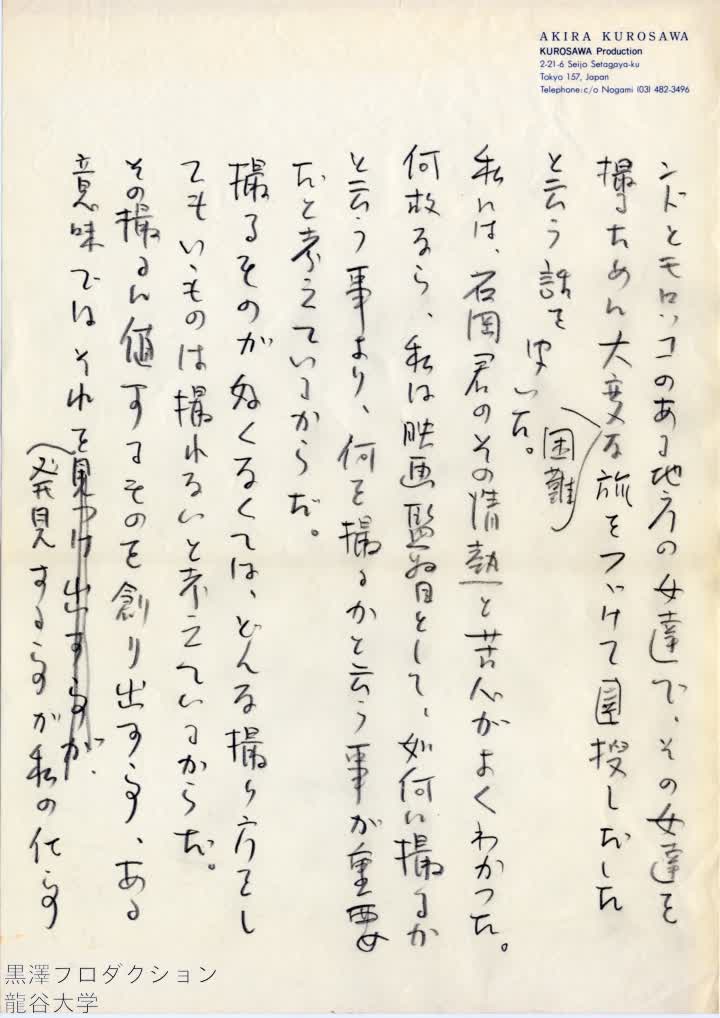 AKIRA KUROSAWA
KUROSAWA Production
2-21-6 Seijo Setagaya-ku
Tokyo 157, Japan
Telephone: c/o Nogami (03) 482-3496
ンドとモロッコのある地方の女達で、その女達を
撮るために大変な旅をつゞけて 捜しだした
困難
と云う話を聞いた。
私には、石岡君のその情熱と苦心がよくわかつた。
何故なら、私は映画監督として、如何に撮るか
と云う事より、何を撮るかと云う事が重要
だと考えているからだ。
撮るものがよくなくては、どんな撮り方をし
てもいゝものは撮れないと考えているからだ。
その撮るに値するものを創り出す事、ある
意味ではそれを見つけ出す事が、
発見する事が私の仕事
黒澤プロダクション
龍谷大学